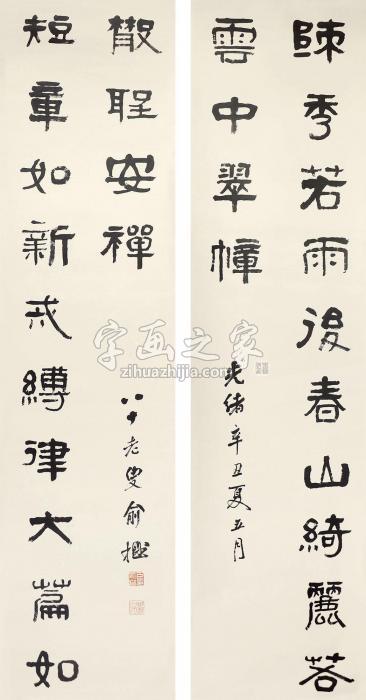 疎秀若雨後春山綺麗若
雲中翠幢
光緒辛丑夏五月
短章如新戒縛律大篇如
散聖安禪
八十老叟俞樾
字画之家
zihuazhijia.com